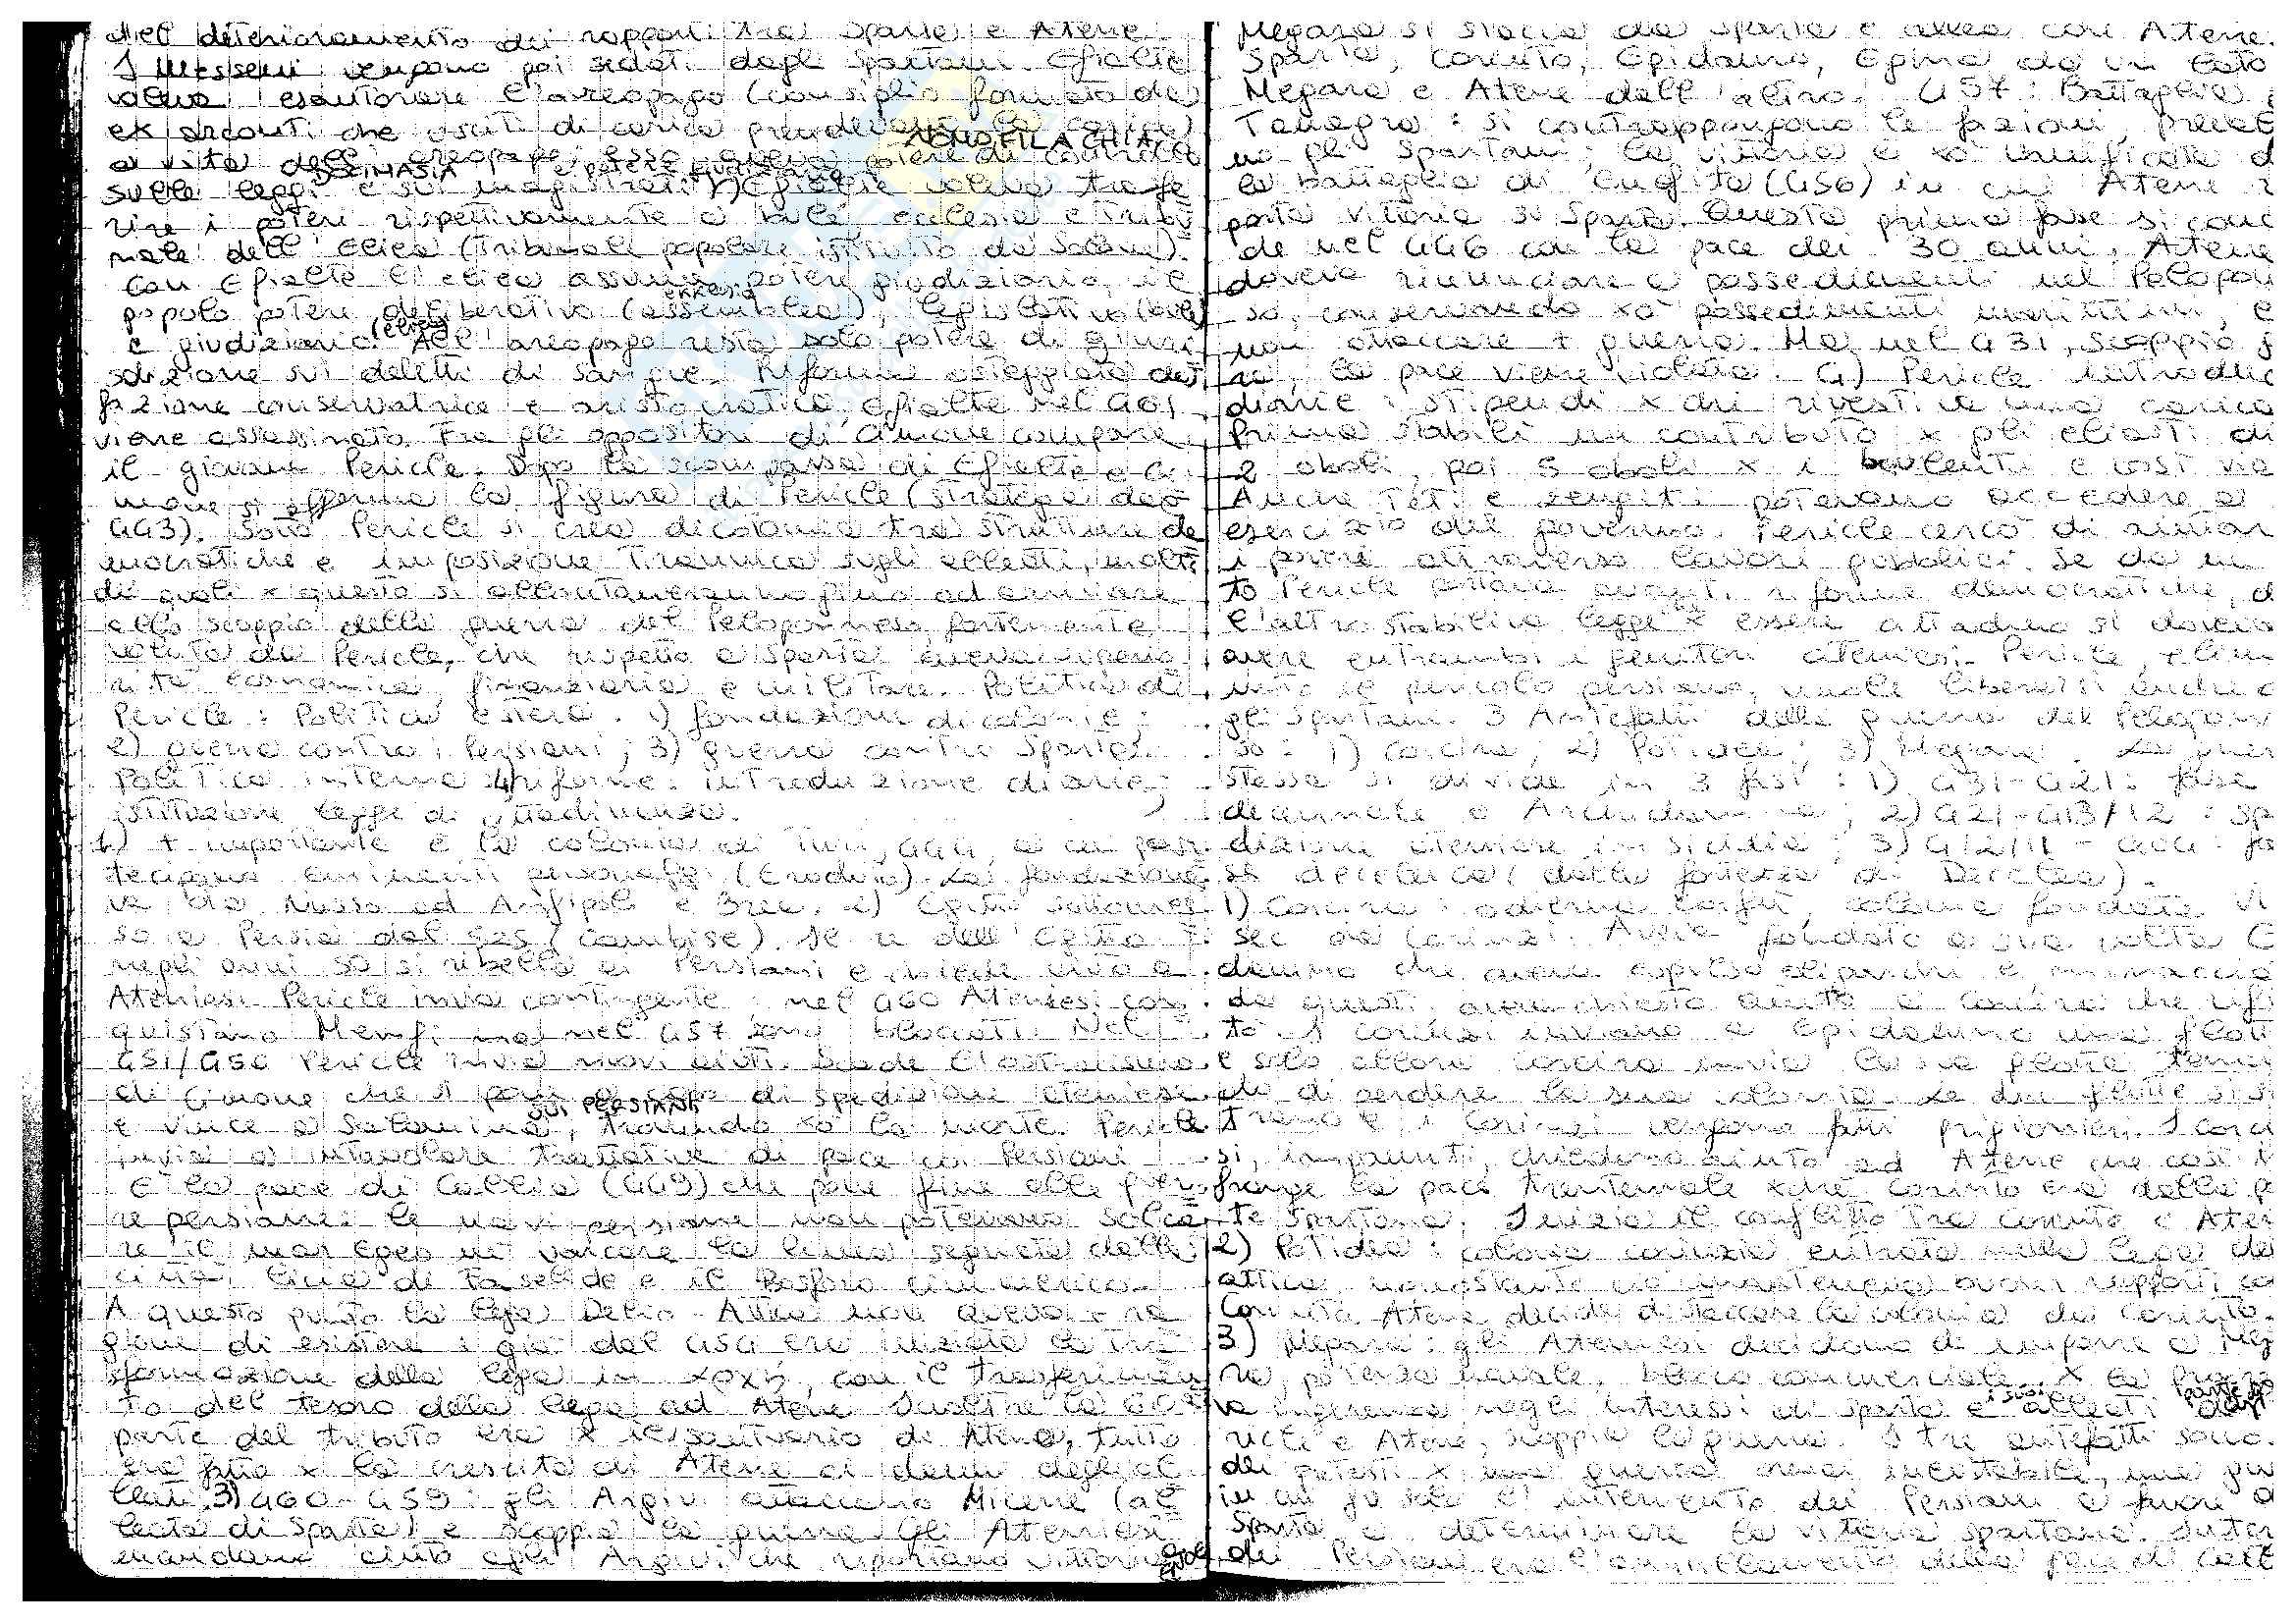 del deterioramento dei rapporti tra Sparta e Atene.
I Messeni vengono poi sedati dagli Spartani. Efialte
voleva esautorare l'areopago (consiglio formato da
ex arconti che usciti di carica prendevano la carica
NOMOFILACHIA
a vita dell'areopago; esso aveva potere di controllo
DOCIMASIA
sulle leggi e sui magistrati). Efialte voleva trasfe
rire i poteri rispettivamente a bulé, ecclesia e Tribu
nale dell'Eliea (Tribunale popolare istituito da Solone).
Con Efialte l'eliea assume potere giudiziario, il
ekklesia
popolo potere deliberativo (assemblea), legislativo (bulé)
(eliea)
e giudiziario. All'areopago resta solo potere di giuri
sdizione sui delitti di sangue. Riforma osteggiata da
fazione conservatrice e aristocratica, Efialte nel 461
viene assassinato. Fra gli oppositori di Cimone compare
il giovane Pericle. Dopo la scomparsa di Efialte e Ci
mone si afferma la figura di Pericle (stratega dal
443). Sotto Pericle si crea dicotomia tra strutture de
mocratiche e imposizione tirannica sugli alleati, molti
dei quali x questo si allontaneranno fino ad arrivare
allo scoppio della guerra del Peloponneso, fortemente
voluta da Pericle, che rispetto a Sparta aveva superio
rità economica, finanziaria e militare. Politica di
Pericle: Politica estera: 1) fondazione di colonie;
2) guerra contro i Persiani; 3) guerra contro Sparta.
Politica interna 4) riforme: introduzione diarie;
istituzione legge di cittadinanza.
1) + importante è la colonia di Turi, 444, a cui par
tecipano eminenti personaggi (Erodoto). La fondazione
Nasso ed Anfipoli e Brea. 2) Egitto sottomes
so a Persia dal 525 (Cambise). Il re dell'Egitto
negli anni 50 si ribella ai Persiani e chiede aiuto a
Ateniesi. Pericle invia contingente: nel 460 Ateniesi con
quistano Memfi, ma nel 457 sono bloccati. Nel
451/450 Pericle invia nuovi aiuti. Scade l'ostracismo
di Cimone che si pone a capo di spedizione ateniese
SUI PERSIANI
e vince a Salamina, trovando xò la morte. Pericle
invia a intavolare trattative di pace coi Persiani
è la pace di Callia (449) che pone fine alle guer
re persiane: le navi persiane non potevano solca
re il mar Egeo né varcare la linea segnata dalle
città licia di Faselide e il Bosforo cimmerico.
A questo punto la lega Delio Attica non aveva + ra
gione di esistere: già dal 454 era iniziata la tra
sformazione della lega in αρχή, con il trasferimen
to del tesoro della lega ad Atene. Inoltre la 60esima
parte del tributo era x il santuario di Atena, tutto
era fatto x la crescita di Atene ai danni degli al
leati. 3) 460-459: gli Argivi attaccano Micene (al
leata di Sparta) e scoppia la guerra. Gli Ateniesi
mandano aiuto agli Argivi che riportano vittoria
Megara si stacca da Sparta e allea con Atene.
Sparta, Corinto, Epidauro, Egina da un lato
Megara e Atene dall'altro. 457: Battaglia
Tanagra: si contrappongono le fazioni, preval
no gli Spartani; la vittoria è xò vanificata d
la battaglia di Enofita (456) in cui Atene r
porta vittoria su Sparta. Questa prima fase si conc
de nel 446 con la pace dei 30 anni, Atene
doveva rinunciare a possedimenti nel Pelopon
so, conservando xò possedimenti marittimi, e
non attaccare + guerra. Ma nel 431, scoppia
la pace viene violata. 4) Pericle introduc
diarie: stipendi x chi rivestiva una carica
Prima stabilì un contributo x gli eliasti di
2 oboli, poi 5 oboli x i buleuti e così via
Anche Teti e zeugiti potevano accedere a
esercizio del governo. Pericle cercò di aiutar
i poveri attraverso lavori pubblici. Se da un
to Pericle portava avanti riforme democratiche, d
l'altro stabiliva legge x essere cittadino si doveva
avere entrambi i genitori ateniesi. Pericle, elim
nato il pericolo persiano, vuole liberarsi anche d
gli Spartani. 3 Antefatti della guerra del Pelopon
so: 1) Corcira; 2) Potidea; 3) Megara. La guer
stessa si divide in 3 fasi: 1) 431-421: fase
decennale o Archidamica; 2) 421-413/12: sp
dizione ateniese in Sicilia; 3) 412/11-404: fa
se deceleica (dalla fortezza di Decelea).
1) Corcira: odierna Corfù, colonia fondata VI
sec da Corinzi. Aveva fondato a sua volta E
damno che aveva espulso oligarchi e minaccia
da questi aveva chiesto aiuto a Corcira che rifi
tò. I corinzi inviano a Epidamno una flott
e solo allora Corcira invia la sua flotta teme
do di perdere la sua colonia. Le due flotte si s
trano e i Corinzi vengono fatti prigionieri. I corci
si, impauriti, chiedono aiuto ad Atene che così i
frange la pace trentennale xché Corinto era della p
te spartana. Inizia il conflitto tra Corinto e Ate
2) Potidea: colonia corinzia entrata nella lega de
attica nonostante buoni rapporti co
Corinto. Atene decide di staccare la colonia da Corinto.
3) Megara: gli Ateniesi decidono di imporre a Meg
ra, potenza navale, blocco commerciale. X la
i suoi
va ingerenza negli interessi di Sparta e alleati
ricle e Atene, scoppia la guerra. I tre antefatti sono
dei pretesti x una guerra ormai inevitabile, una gu
in cui fu l'intervento dei Persiani a favore d
Sparta a determinare la vittoria spartana. Inter
dei Persiani era l'annullamento della pace di Call